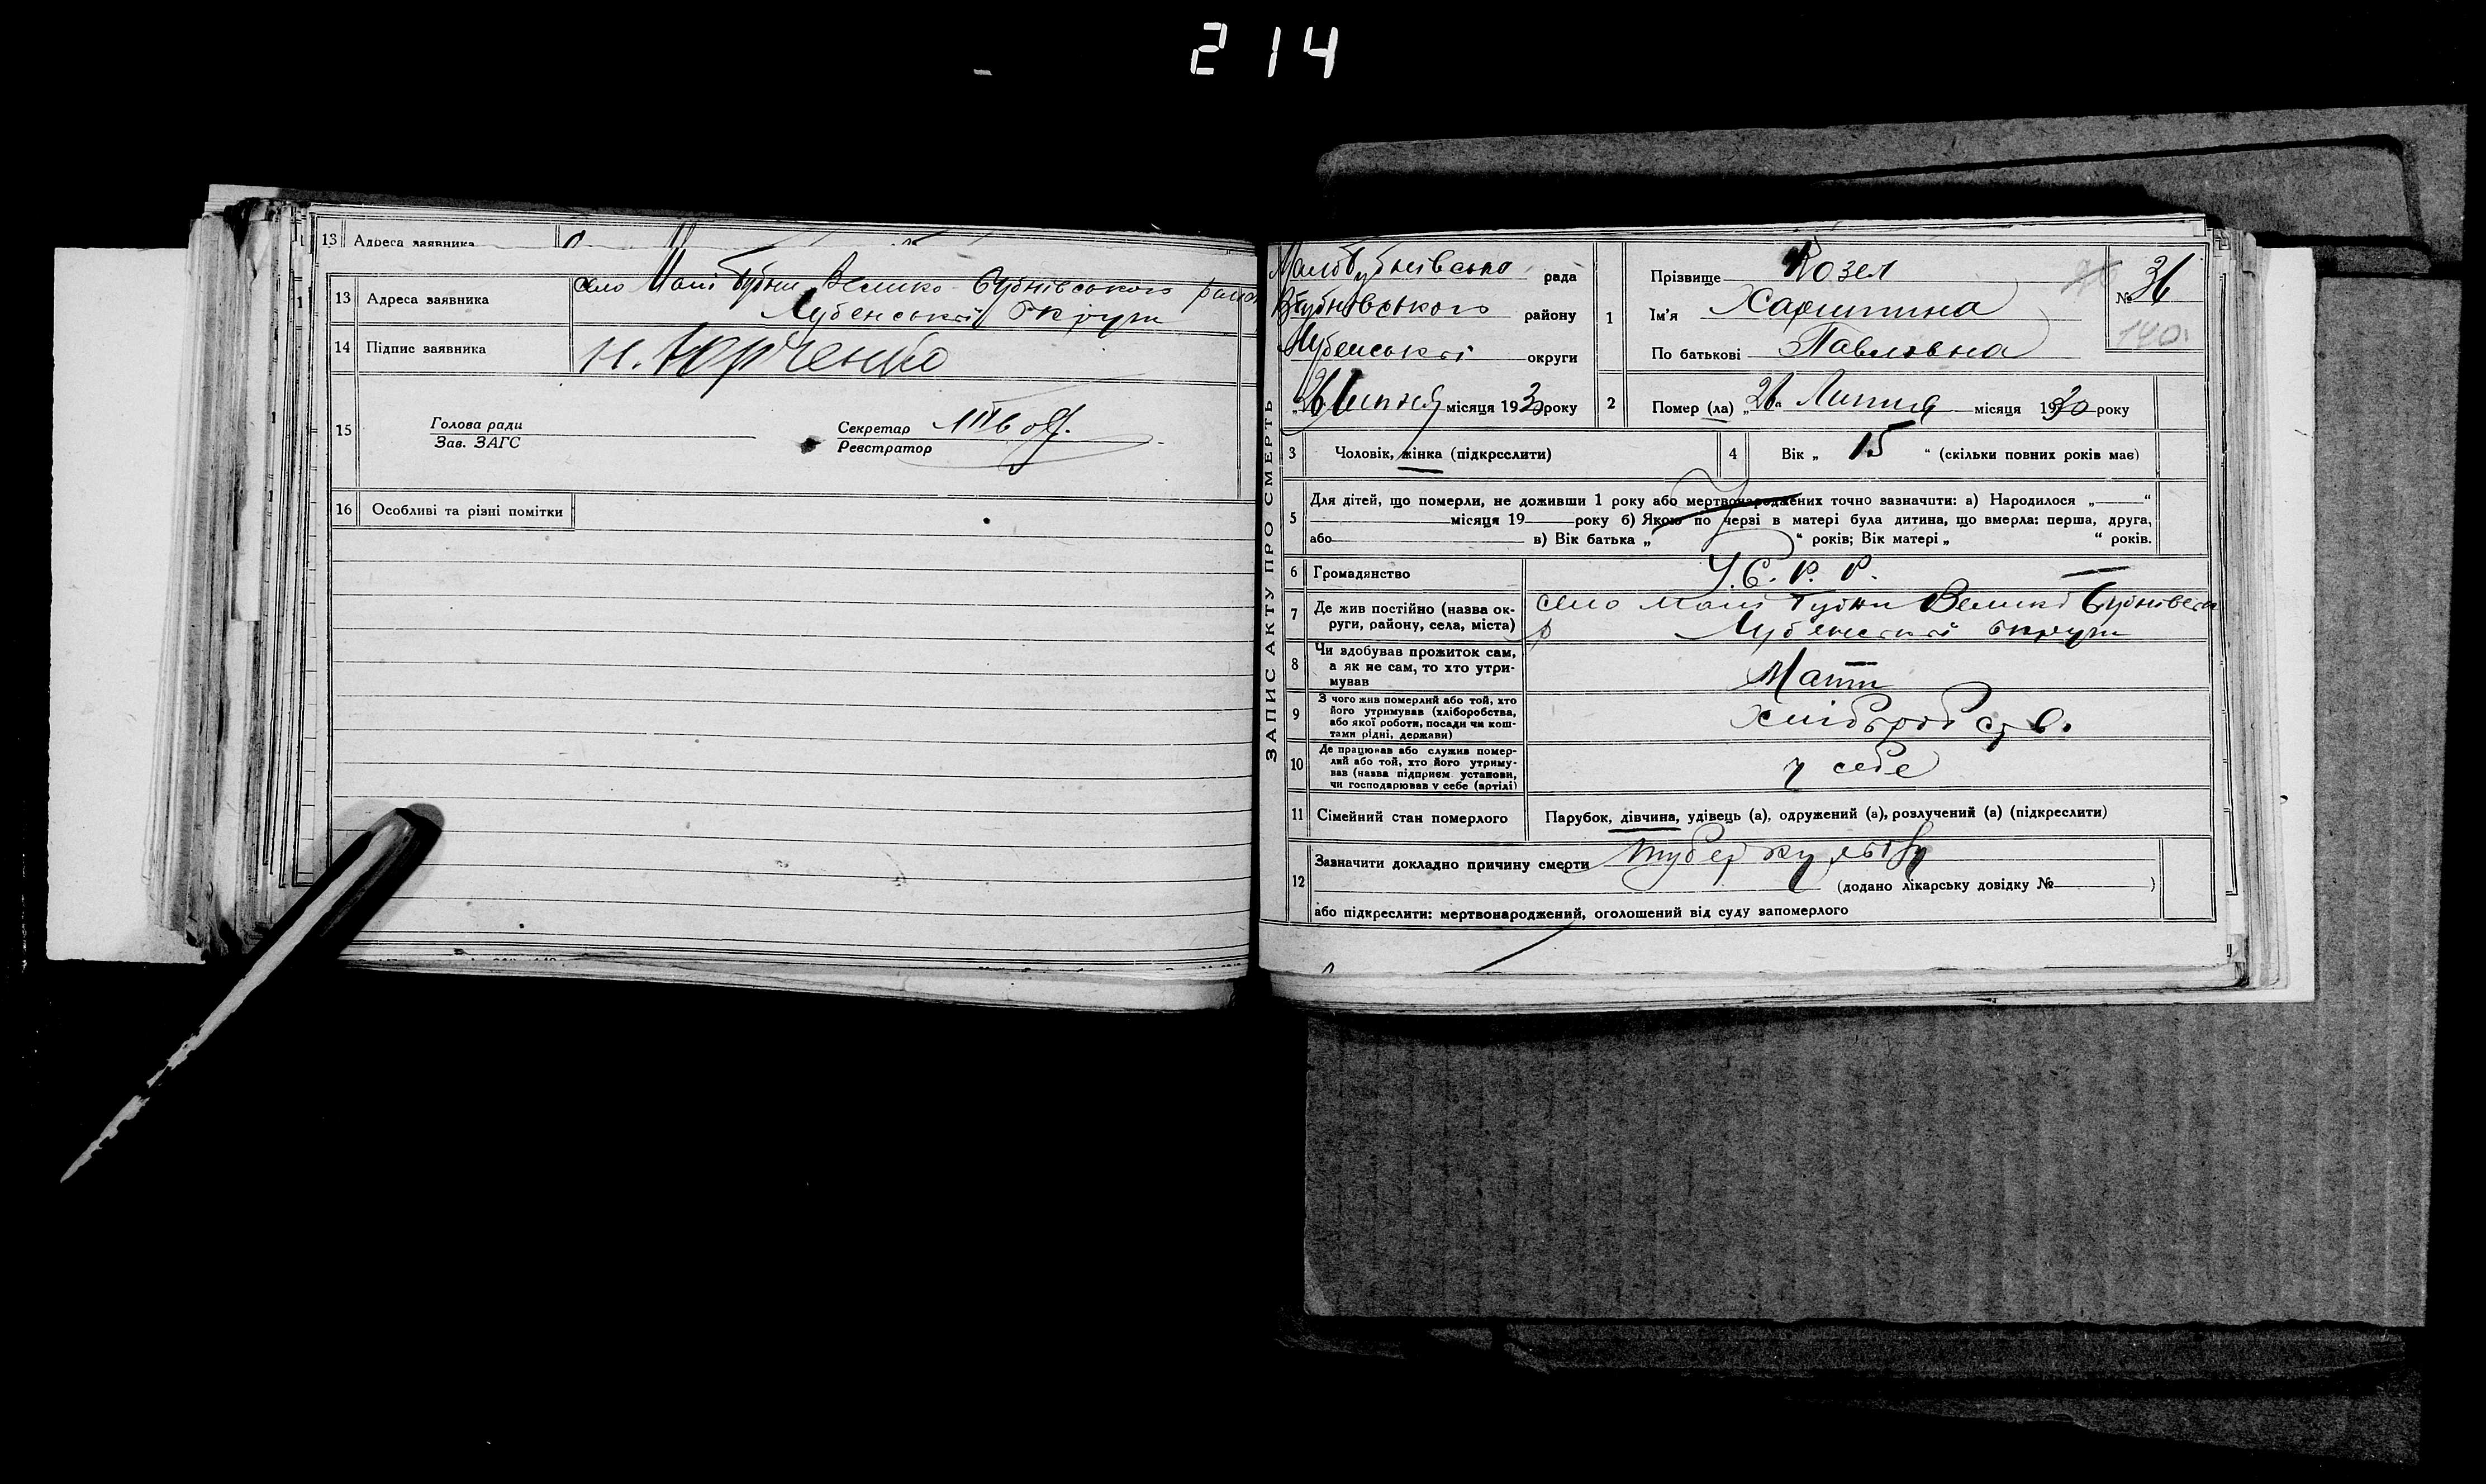 214
13 Адреса заявника
13 Адреса заявника село Малі Бубни Велико-Бубнівського район
Лубенської Округи
14 Підпис заявника Н. Юрченко
15 Голова ради
Зав. ЗАГС
Секретар
Реєстратор
16 Особливі та різні помітки
ЗАПИС АКТУ ПРО СМЕРТЬ
Малобубнівська рада
ВБубнівського району
Лубенської округи
„26 Липня місяця 1930 року
1 Прізвище Козел
Ім'я Харитина
По батькові Павловна
№ 36
140
2 Помер (ла) „26“ Липня місяця 1930 року
3 Чоловік, жінка (підкреслити)
4 Вік „ 15 “ (скільки повних років має)
5 Для дітей, що померли, не доживши 1 року або мертвонароджених точно зазначити: а) Народилося „ “
місяця 19 року б) Якою по черзі в матері була дитина, що вмерла: перша, друга,
або в) Вік батька „ “ років; Вік матері „ “ років.
6 Громадянство У.С.Р.Р.
7 Де жив постійно (назва ок-
руги, району, села, міста)
село Малі Бубни Велико Бубнівськ
р Лубенської округи
8 Чи вдобував прожиток сам,
а як не сам, то хто утри-
мував
Мати
9 З чого жив померлий або той, хто
його утримував (хліборобства,
або якої роботи, посади чи кош-
тами рідні, держави)
Хліборобств.
10 Де працював або служив помер-
лий або той, хто його утриму-
вав (назва підприєм. установи,
чи господарював у себе (артілі)
у себе
11 Сімейний стан померлого Парубок, дівчина, удівець (а), одружений (а), розлучений (а) (підкреслити)
12 Зазначити докладно причину смерти туберкульозу
(додано лікарську довідку № )
або підкреслити: мертвонароджений, оголошений від суду запомерлого